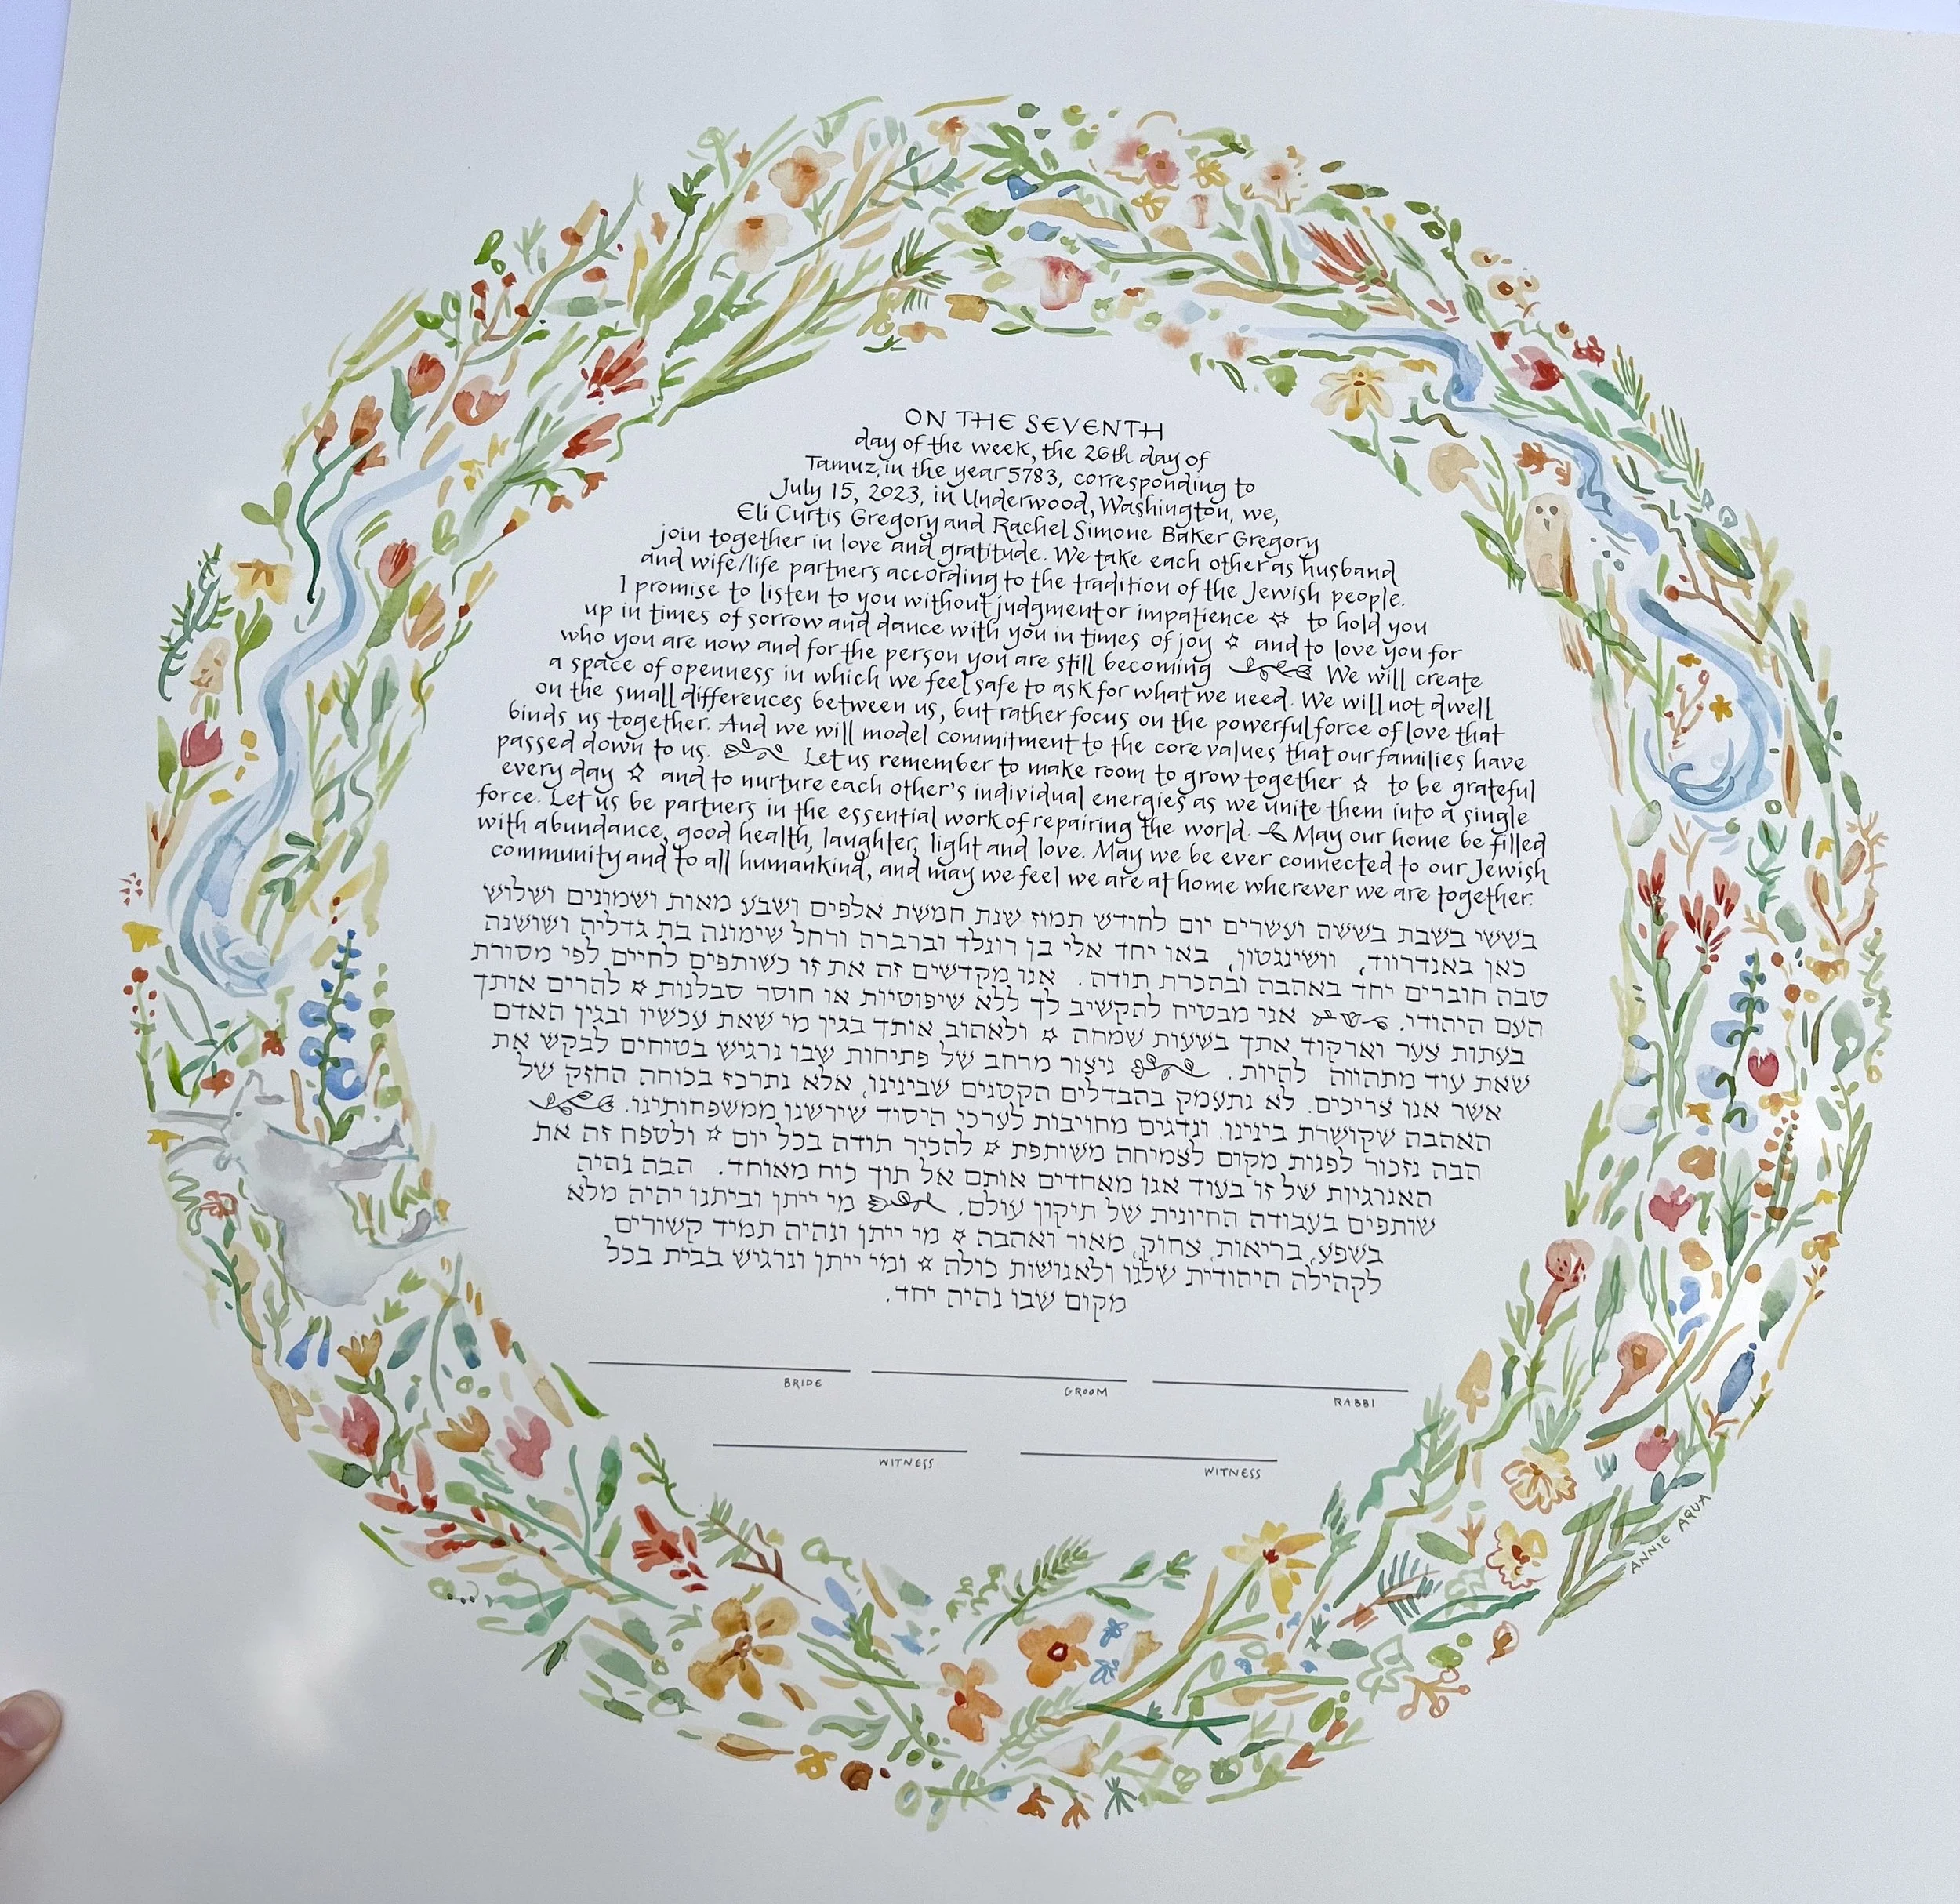 ON THE SEVENTH
day of the week, the 26th day of
Tamuz, in the year 5783, corresponding to
July 15, 2023, in Underwood, Washington, we,
Eli Curtis Gregory and Rachel Simone Baker Gregory
join together in love and gratitude. We take each other as husband
and wife/life partners according to the tradition of the Jewish people.
I promise to listen to you without judgment or impatience ✡ to hold you
up in times of sorrow and dance with you in times of joy ✡ and to love you for
who you are now and for the person you are still becoming We will create
a space of openness in which we feel safe to ask for what we need. We will not dwell
on the small differences between us, but rather focus on the powerful force of love that
binds us together. And we will model commitment to the core values that our families have
passed down to us. Let us remember to make room to grow together ✡ to be grateful
every day ✡ and to nurture each other's individual energies as we unite them into a single
force. Let us be partners in the essential work of repairing the world. May our home be filled
with abundance, good health, laughter, light and love. May we be ever connected to our Jewish
community and to all humankind, and may we feel we are at home wherever we are together.
בששי בשבת בששה ועשרים יום לחודש תמוז שנת חמשת אלפים ושבע מאות ושמונים ושלוש
כאן באנדרווד, וושינגטון, באו יחד אלי בן רונלד וברברה ורחל שימונה בת גדליה ושושנה
טבה חוברים יחד באהבה ובהכרת תודה. אנו מקדשים זה את זו כשותפים לחיים לפי מסורת
העם היהודי. אני מבטיח להקשיב לך ללא שיפוטיות או חוסר סבלנות ✡ להרים אותך
בעתות צער וארקוד אתך בשעות שמחה ✡ ולאהוב אותך בגין מי שאת עכשיו ובגין האדם
שאת עוד מתהווה להיות. ניצור מרחב של פתיחות שבו נרגיש בטיחים לבקש את
אשר אנו צריכים. לא נתעמק בהבדלים הקטנים שבינינו, אלא נתרכז בכוחה החזק של
האהבה שקושרת בינינו. ונדגים מחויבות לערכי היסוד שירשנו ממשפחותינו.
הבה נזכור לפנות מקום לצמיחה משותפת ✡ להכיר תודה בכל יום ✡ ולטפח זה את
האנרגיות של זו בעוד אנו מאחדים אותם אל תוך כוח מאוחד. הבה נהיה
שותפים בעבודה החיונית של תיקון עולם. מי ייתן וביתנו יהיה מלא
בשפע, בריאות, צחוק, מאור ואהבה ✡ מי ייתן ונהיה תמיד קשורים
לקהילה היהודית שלנו ולאנושות כולה ✡ ומי ייתן ונרגיש בבית בכל
מקום שבו נהיה יחד.
BRIDE GROOM RABBI
WITNESS WITNESS
ANNIE AQUA